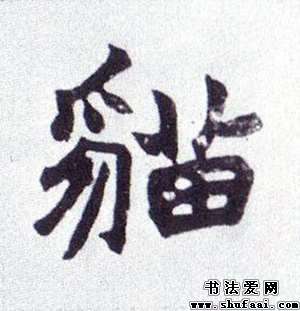 貓
书法爱网
www.shufaai.com